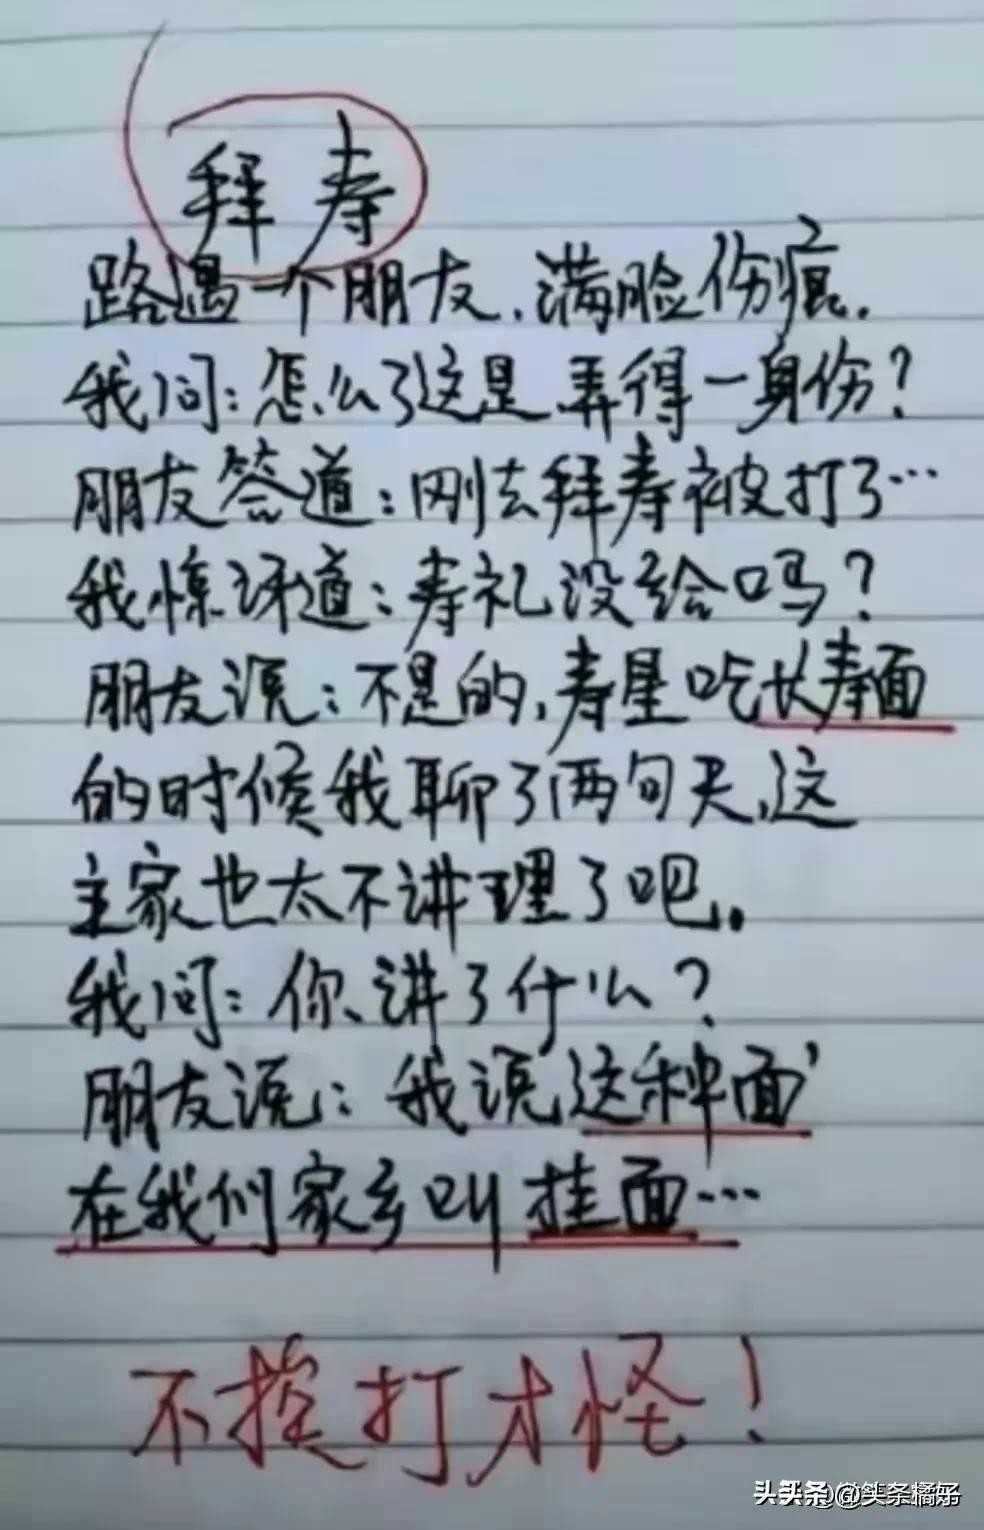 拜寿
路遇一个朋友,满脸伤痕.
我问:怎么了这是弄得一身伤?
朋友答道:刚去拜寿被打了…
我惊讶道:寿礼没给吗?
朋友说:不是的,寿星吃长寿面
的时候我聊了两句天,这
主家也太不讲理了吧.
我问:你讲了什么?
朋友说:我说这种面
在我们家乡叫挂面…
不挨打才怪!
头条@笑条橘子